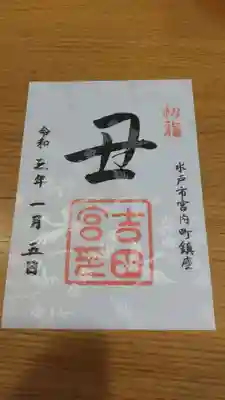 初詣
水戸市宮内町鎮座
丑
吉田
宮
令和三年一月五日